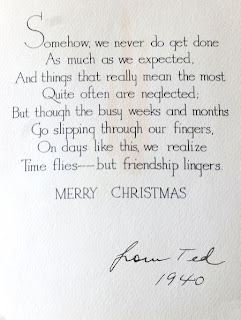 Somehow, we never do get done
As much as we expected,
And things that really mean the most
Quite often are neglected;
But though the busy weeks and months
Go slipping through our fingers,
On days like this, we realize
Time flies--but friendship lingers.
MERRY CHRISTMAS
from Ted
1940